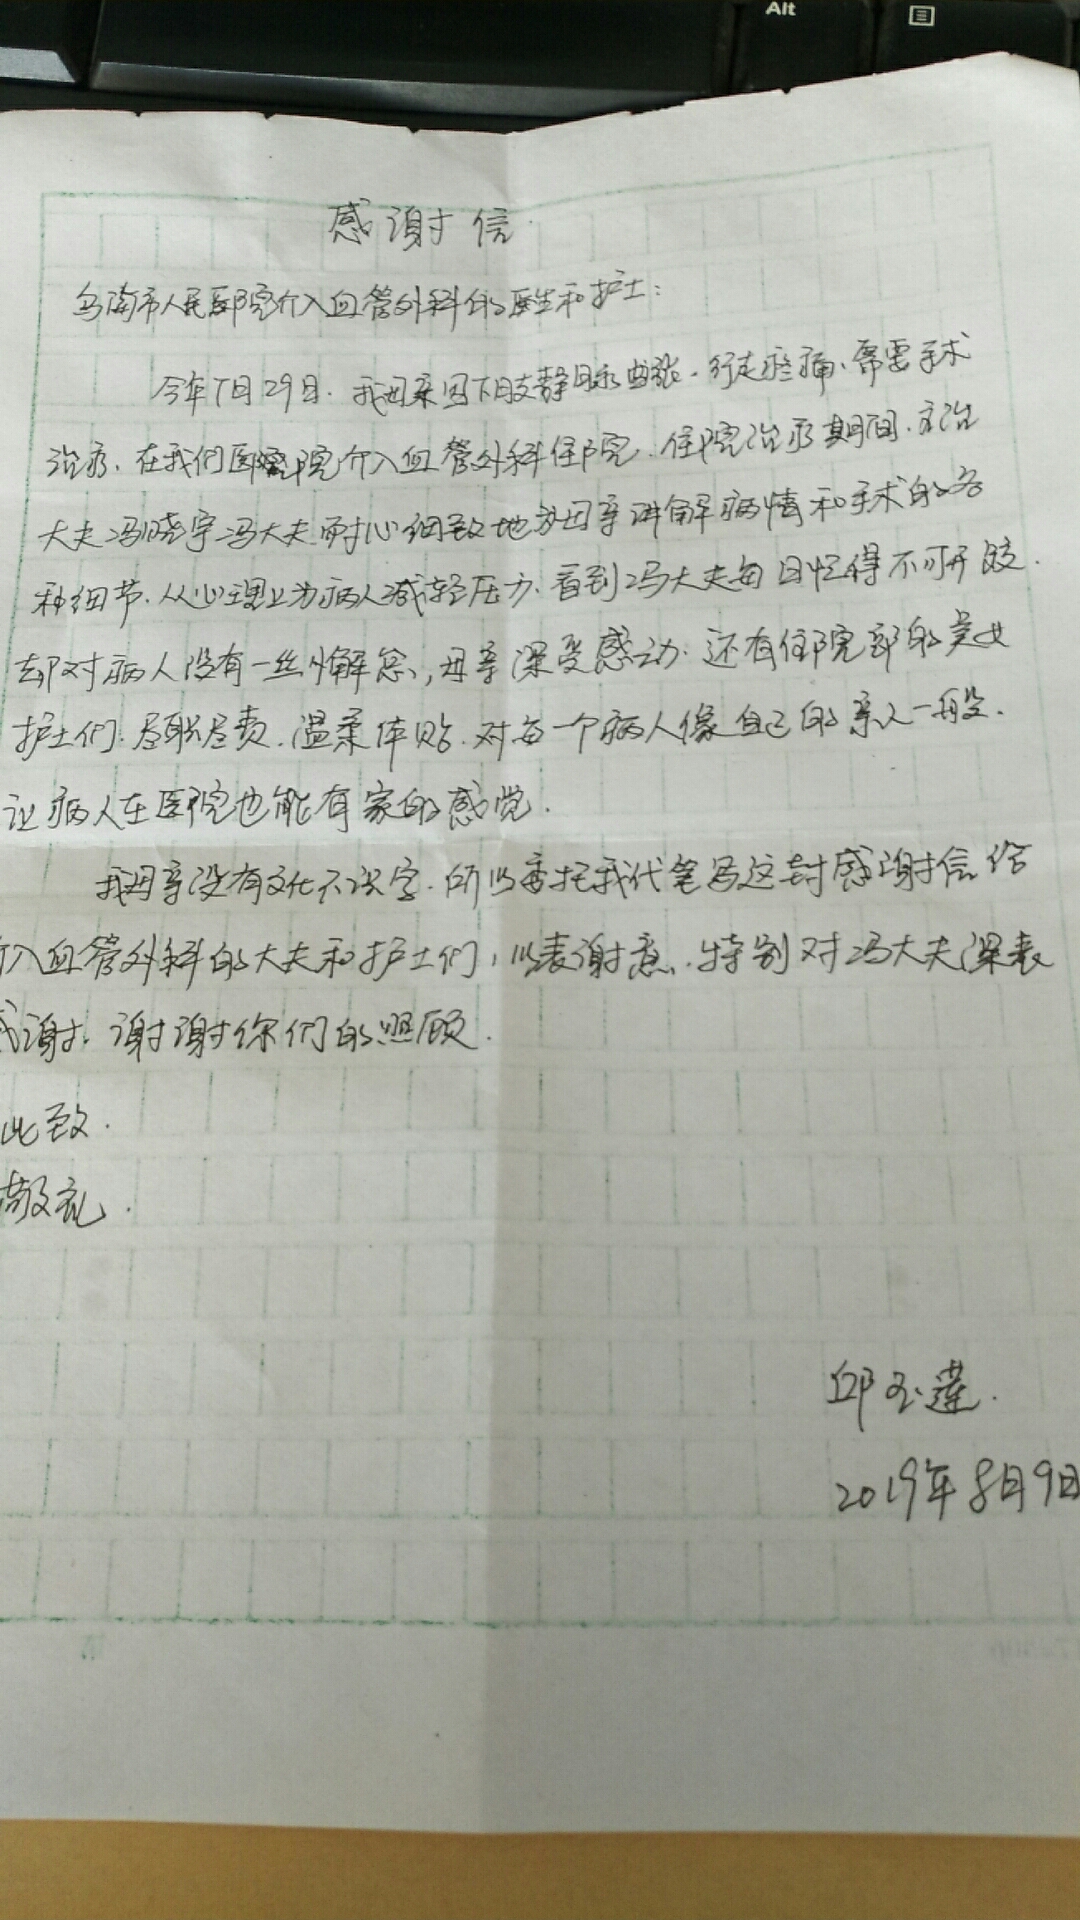 Alt
感谢信
乌海市人民医院介入血管外科的医生和护士:
今年7月29日.我母亲因下肢静脉曲张.行走疼痛、需要手术
治疗、在我们医院介入血管外科住院.住院治疗期间.主治
大夫冯晓宇冯大夫耐心细致地为母亲讲解病情和手术的各
种细节.从心理上为病人减轻压力.看到冯大夫每日忙得不可开胶.
却对病人没有一丝懈怠,母亲深受感动.还有住院部的美女
护士们.尽职尽责.温柔体贴.对每一个病人像自己的亲人一般.
让病人在医院也能有家的感觉.
我母亲没有文化不识字.所以委托我代笔写这封感谢信给
介入血管外科的大夫和护士们,以表谢意.特别对冯大夫深表
感谢.谢谢你们的照顾.
此致.
敬礼.
邱玉莲.
2019年8月9日